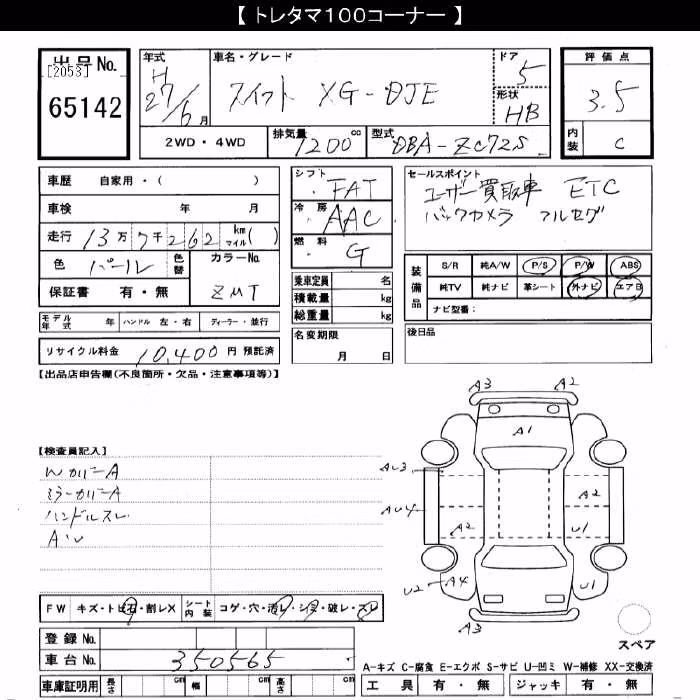 【 トレタマ100コーナー 】
出品No.
[2053]
65142
年式
H
27/6月
車名・グレード
スイフト XG-DJE
ドア
5
形状
HB
評価点
3.5
内装
C
2WD・4WD
排気量
1200cc
型式
DBA-ZC72S
車歴 自家用・( )
車検 年 月
走行 13万7千262 km マイル( )
色 パール 色替
カラーNo.
ZMT
保証書 有・無
シフト
FAT
冷房
AAC
燃料
G
乗車定員 名
積載量 kg
総重量 kg
セールスポイント
ユーザー買取車 ETC
バックカメラ フルセグ
装備品
S/R 純A/W P/S P/W ABS
純TV 純ナビ 革シート 外ナビ エアB
ナビ型番:
モデル年式 年 ハンドル 左・右 ディーラー・並行
名変期限
月 日
後日品
リサイクル料金 10,400円 預託済
【出品店申告欄(不良箇所・欠品・注意事項等)】
A3 A2
A1
【検査員記入】
Wカバー A
ミラーカバー A
ハンドルスレ
A・U
AU3
A2
AU4
A2
U1
U2 A4
U1
A3
スペア
FW キズ・トビ石・割レX シート内装 コゲ・穴・汚レ・シミ・破レ・スレ
登録No.
車台No. 350565
A-キズ C-腐食 E-エクボ S-サビ U-凹ミ W-補修 XX-交換済
車庫証明用 長さ cm 幅 cm 高さ cm
工具 有・無 ジャッキ 有・無